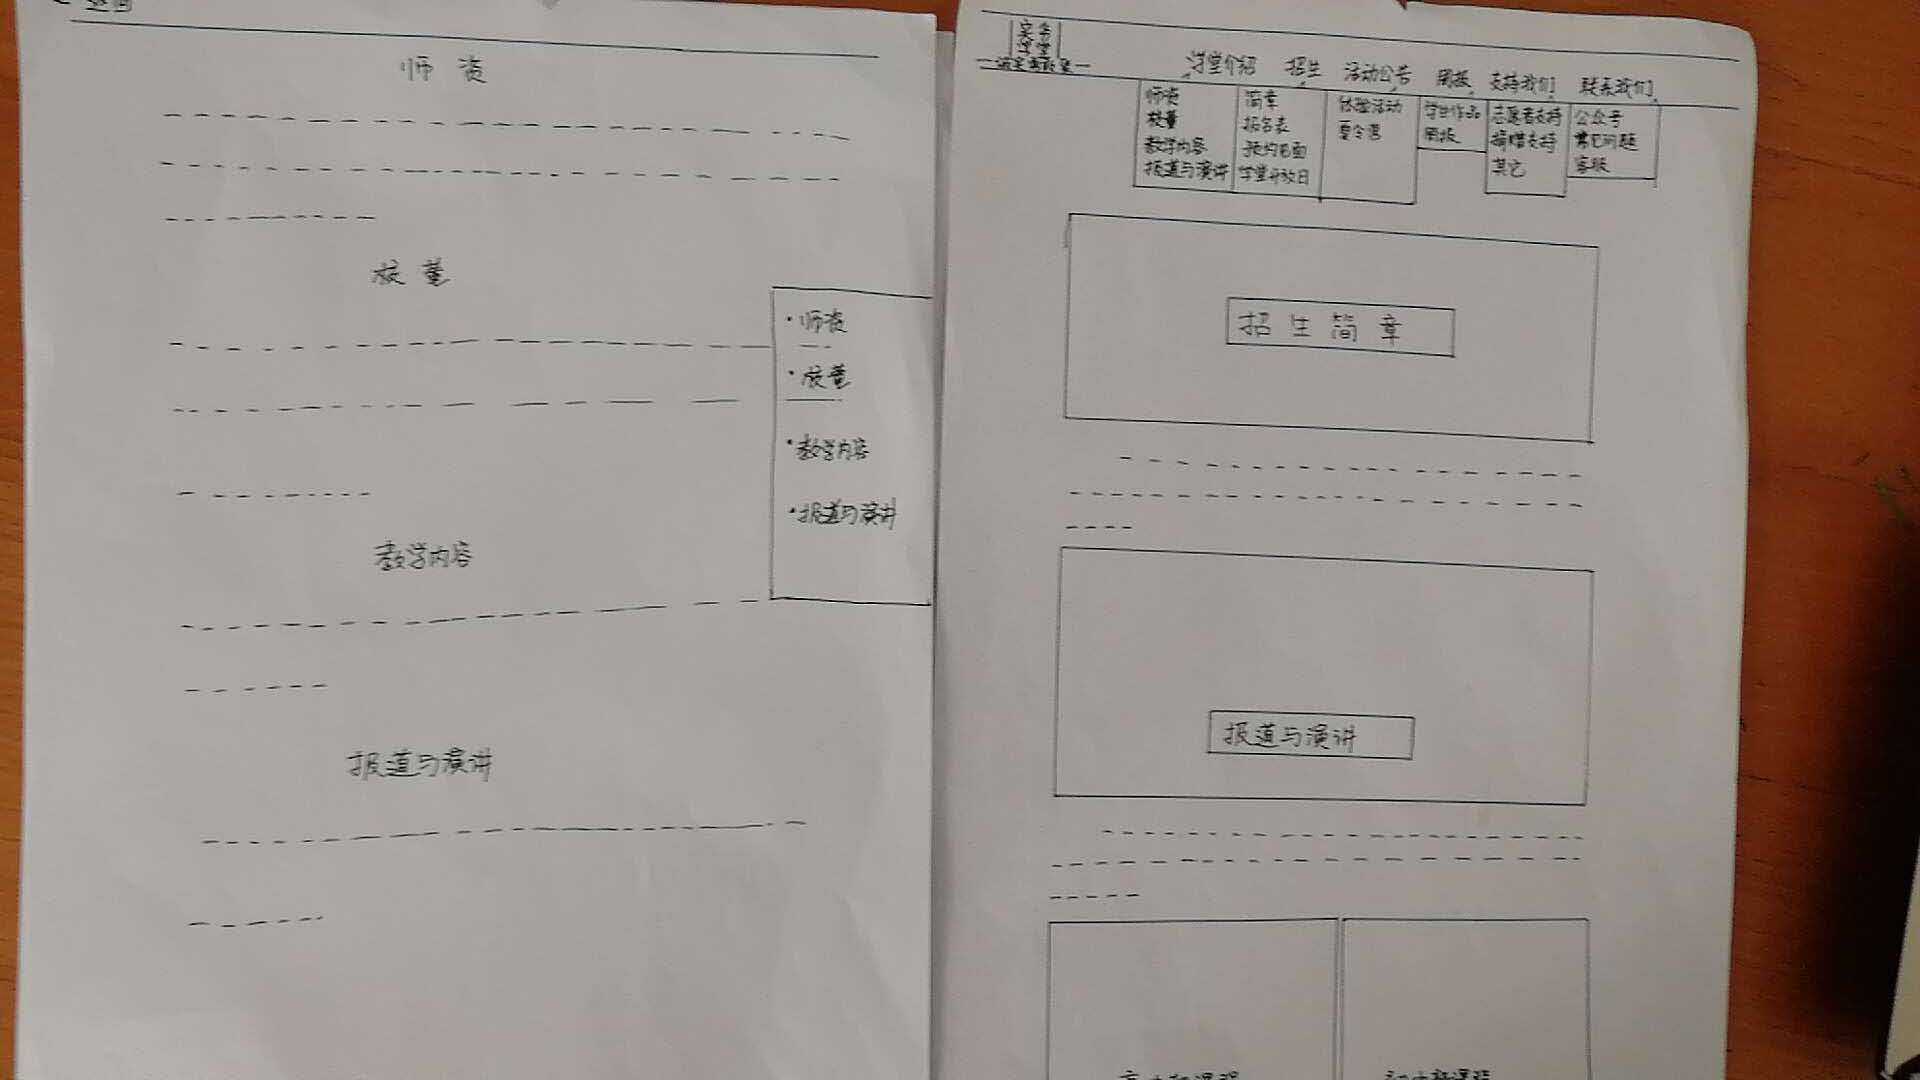 返回
师资
校董
教学内容
报道与演讲
·师资
·校董
·教学内容
·报道与演讲
学堂
学堂介绍 招生 活动公告 周报 支持我们 联系我们
师资
校董
教学内容
报道与演讲
简章
报名表
预约面
学堂开放日
体验活动
夏令营
学生作品
周报
志愿者支持
捐赠支持
其它
公众号
常见问题
客服
招生简章
报道与演讲